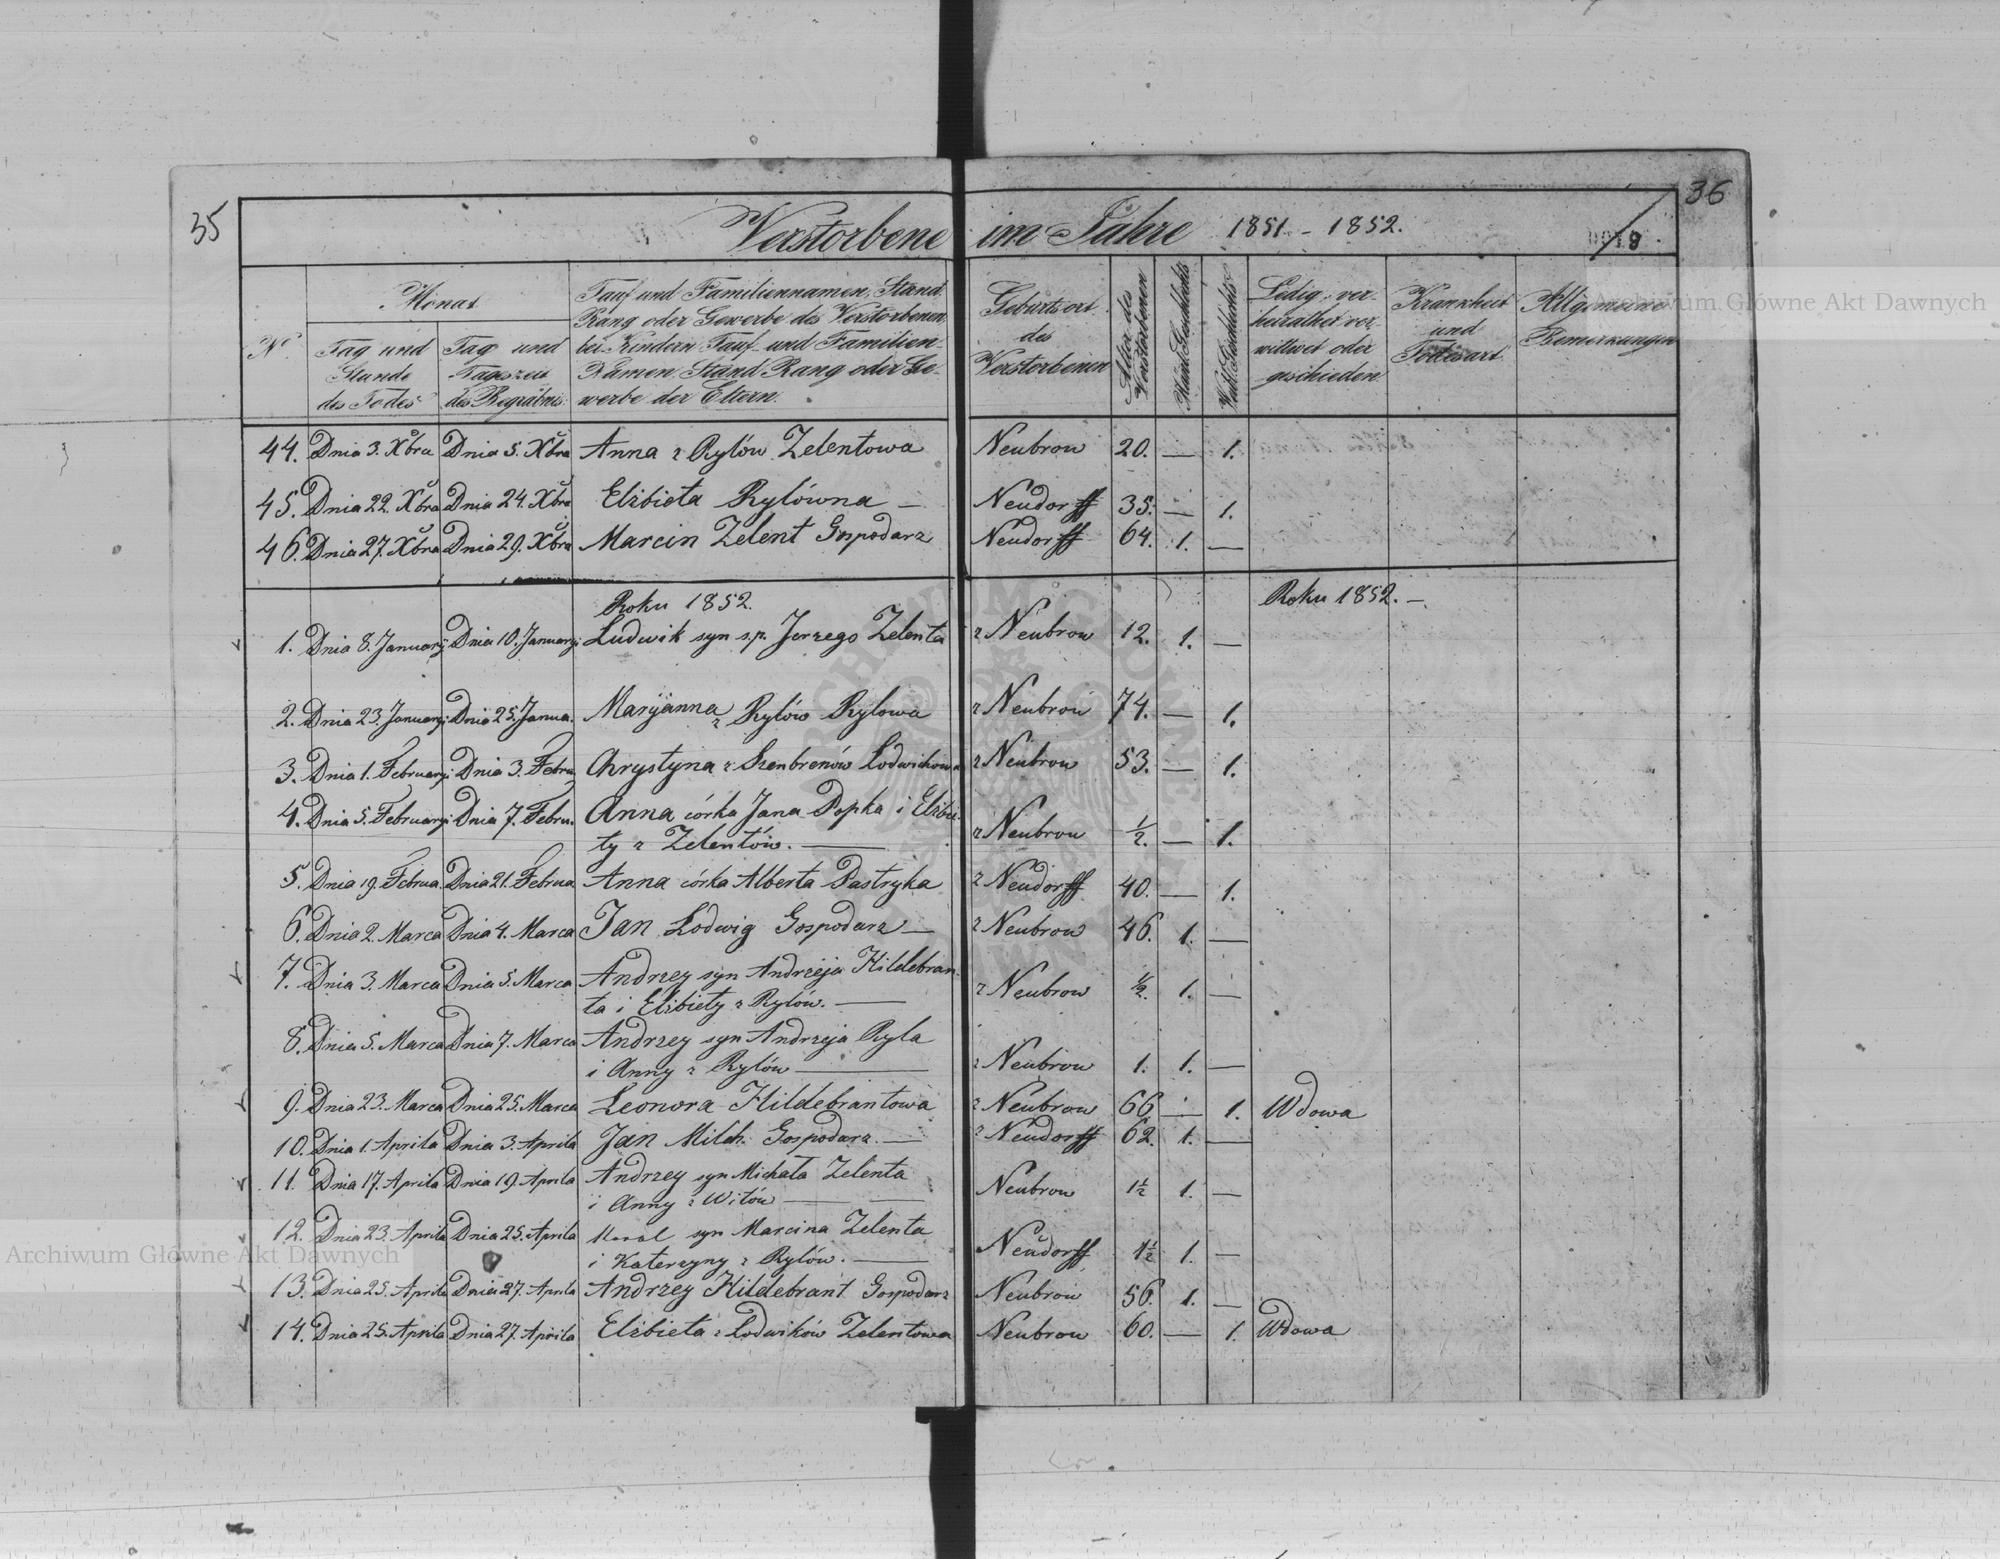 35
36
Verstorbene im Jahre 1851 - 1852.
Archiwum Główne Akt Dawnych
Nº
Monat
Tag und
Stunde
des Todes
Tag und
Tageszeit
des Begräbnis.
Tauf und Familiennamen, Stand
Rang oder Gewerbe des Verstorbenen,
bei Kindern Tauf und Familien-
Namen, Stand Rang oder Ge-
werbe der Eltern.
Geburtsort
des
Verstorbenen
Alter des
Verstorbenen
Geschlechts
Geschlechts
Ledig, ver-
heirathet ver-
wittwet oder
geschieden.
Krankheit
und
Todesart.
Allgemeine
Bemerkungen
44. Dnia 3. Xbra Dnia 5. Xbra Anna z Rylów Zelentowa Neubrow 20. — 1.
45. Dnia 22. Xbra Dnia 24. Xbra Elżbieta Rylówna — Neudorff 35. — 1.
46. Dnia 27. Xbra Dnia 29. Xbra Marcin Zelent Gospodarz Neudorff 64. 1. —
Roku 1852. Roku 1852. —
1. Dnia 8. Januarij Dnia 10. Januarij Ludwik syn s.p. Jerzego Zelenta z Neubrow 12. 1. —
2. Dnia 23. Januarij Dnia 25. Janua. Maryanna z Rylów Rylowa z Neubrow 74. — 1.
3. Dnia 1. Februarij Dnia 3. Febru. Chrystyna z Szenbrenów Lodwichowa z Neubrow 53. — 1.
4. Dnia 5. Februarij Dnia 7. Febru. Anna córka Jana Popka i Elżbie-
ty z Zelentów. — z Neubrow ½. — 1.
5. Dnia 19. Februa. Dnia 21. Februa. Anna córka Alberta Pastryka z Neudorff 40. — 1.
6. Dnia 2. Marca Dnia 4. Marca Jan Lodwig Gospodarz — z Neubrow 46. 1. —
7. Dnia 3. Marca Dnia 5. Marca Andrzey syn Andrzeja Hildebran-
ta i Elżbiety z Rylów. — z Neubrow ½. 1. —
8. Dnia 5. Marca Dnia 7. Marca Andrzey syn Andrzeja Ryla
i Anny z Rylów — z Neubrow 1. 1. —
9. Dnia 23. Marca Dnia 25. Marca Leonora Hildebrantowa z Neubrow 66 — 1. Wdowa
10. Dnia 1. Aprila Dnia 3. Aprila Jan Milch. Gospodarz. — z Neudorff 62. 1. —
11. Dnia 17. Aprila Dnia 19. Aprila Andrzey syn Michała Zelenta
i Anny z Witów — Neubrow 1½ 1. —
12. Dnia 23. Aprila Dnia 25. Aprila syn Marcina Zelenta
i Katerzyny z Rylów. — Neudorff 1½ 1. —
13. Dnia 25. Aprila Dnia 27. Aprila Andrzey Hildebrant Gospodarz Neubrow 56. 1. —
14. Dnia 25. Aprila Dnia 27. Aprila Elżbieta z Lodwików Zelentowa Neubrow 60. — 1. Wdowa
Archiwum Główne Akt Dawnych